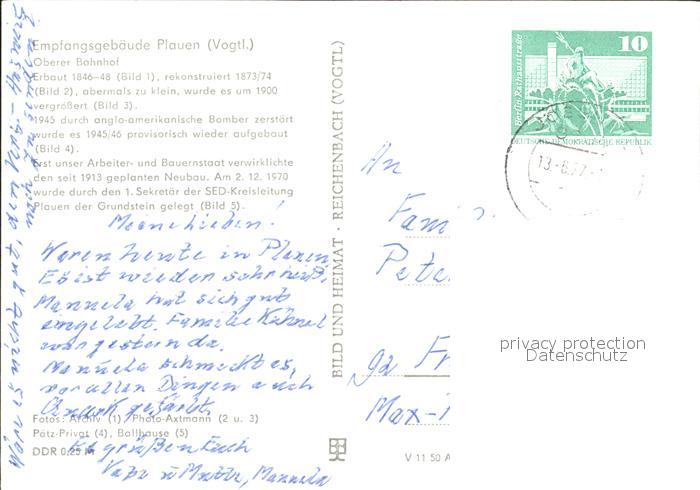 Empfangsgebäude Plauen (Vogtl.)
Oberer Bahnhof
Erbaut 1846-48 (Bild 1), rekonstruiert 1873/74
(Bild 2), abermals zu klein, wurde es um 1900
vergrößert (Bild 3).
1945 durch anglo-amerikanische Bomber zerstört
wurde es 1945/46 provisorisch wieder aufgebaut
(Bild 4).
Erst unser Arbeiter- und Bauernstaat verwirklichte
den seit 1913 geplanten Neubau. Am 2. 12. 1970
wurde durch den 1. Sekretär der SED-Kreisleitung
Plauen der Grundstein gelegt (Bild 5).
Meine Lieben!
Waren heute in Plauen,
Es ist wieder sehr heiß.
Manuela hat sich gut
eingelebt. Familie Kühnel
war gestern da.
Manuela schmeckt es,
vor allen Dingen auch
gefärbt.
Es grüßen Euch
Papa u Mutti, Manuela
Fotos: Archiv (1), Photo-Axtmann (2 u. 3)
Pätz-Privat (4), Ballhause (5)
DDR 0,25 M
BILD UND HEIMAT · REICHENBACH (VOGTL)
V 11 50 A
10
Berlin, Rathausstraße
DEUTSCHE DEMOKRATISCHE REPUBLIK
13.-8.77
An
Fami
Pete
Fr
Max-
privacy protection
Datenschutz